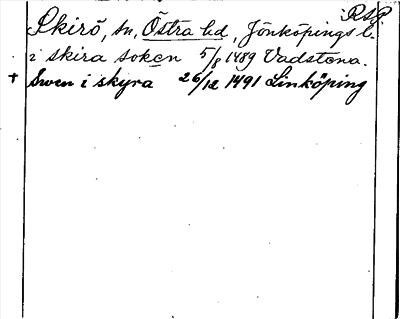 RAP.
Skirö, sn, Östra hd, Jönköpings l.
i skira soken 5/8 1489 Vadstena.
† Swen i skyra 26/12 1491 Linköping